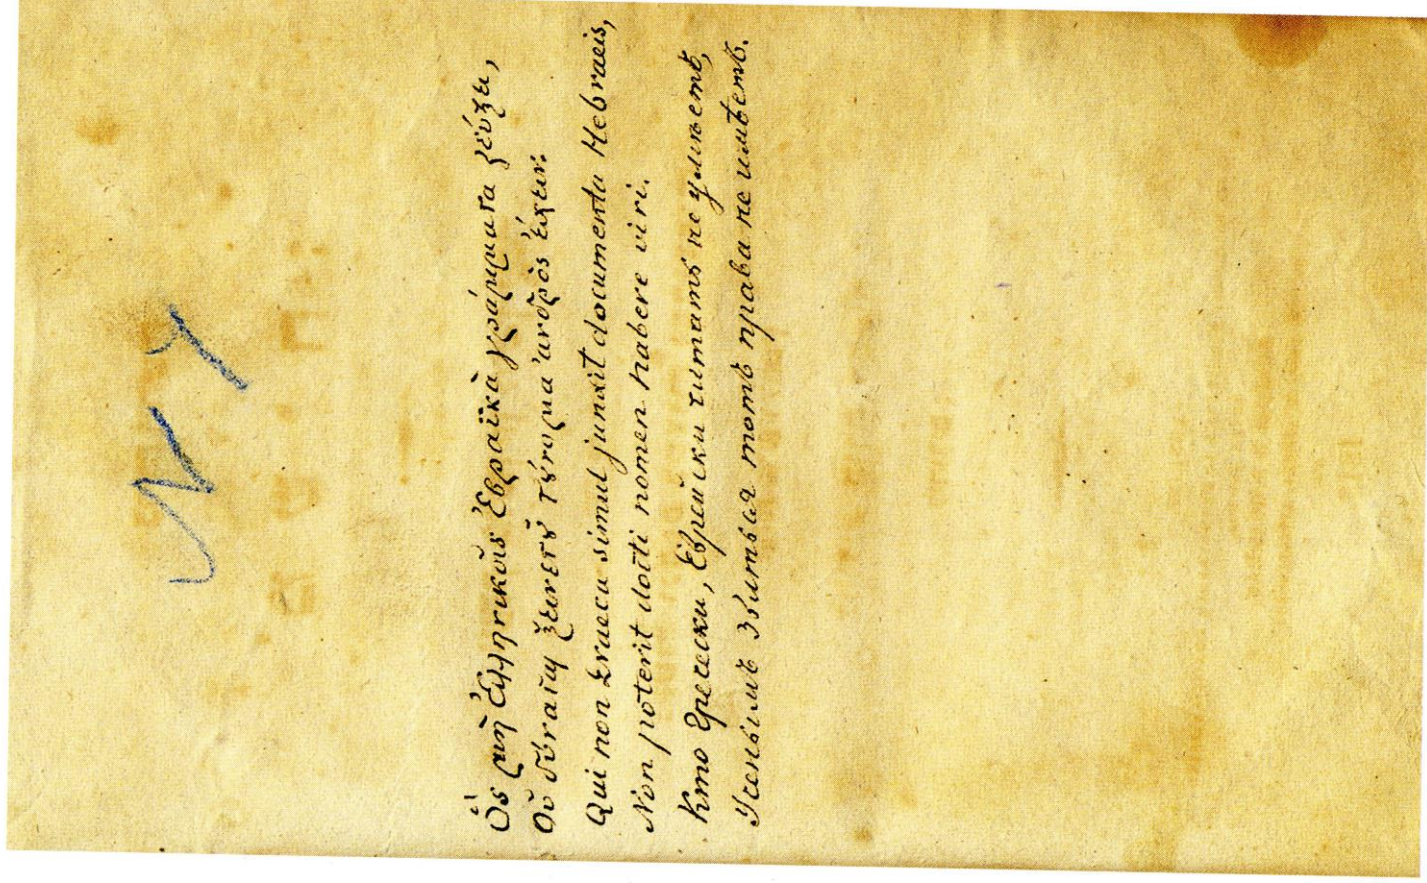 Ὃς μὴ ἑλληνικοῖς Ἑβραϊκὰ γράμματα ζεύξει,
Οὐ δύναται ξεινετȣ̃ τȣ́νομα ἀνδρὸς ἔχειν:
Qui non Graeca simul junxit documenta Hebraeis,
Non poterit docti nomen habere viri.
Кто Гречески, Еврейски читать не умѣетъ,
Ученымъ зваться тотъ права не имѣетъ.